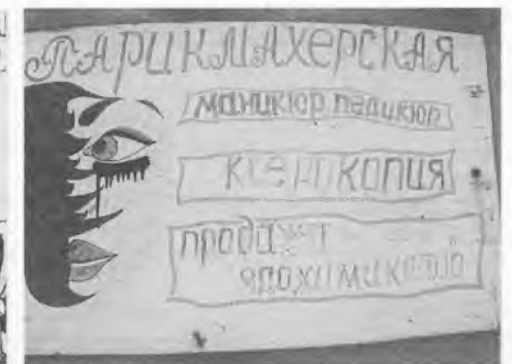 ПАРИКМАХЕРСКАЯ
маникюр педикюр
ксерокопия
продажа
ядохимикатов